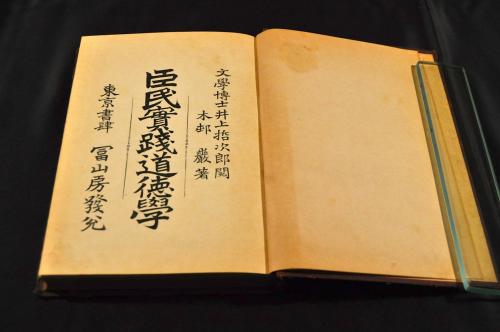 文學博士井上哲次郎閱
木邨巖著
臣民實踐道德學
東京書肆 冨山房發兌